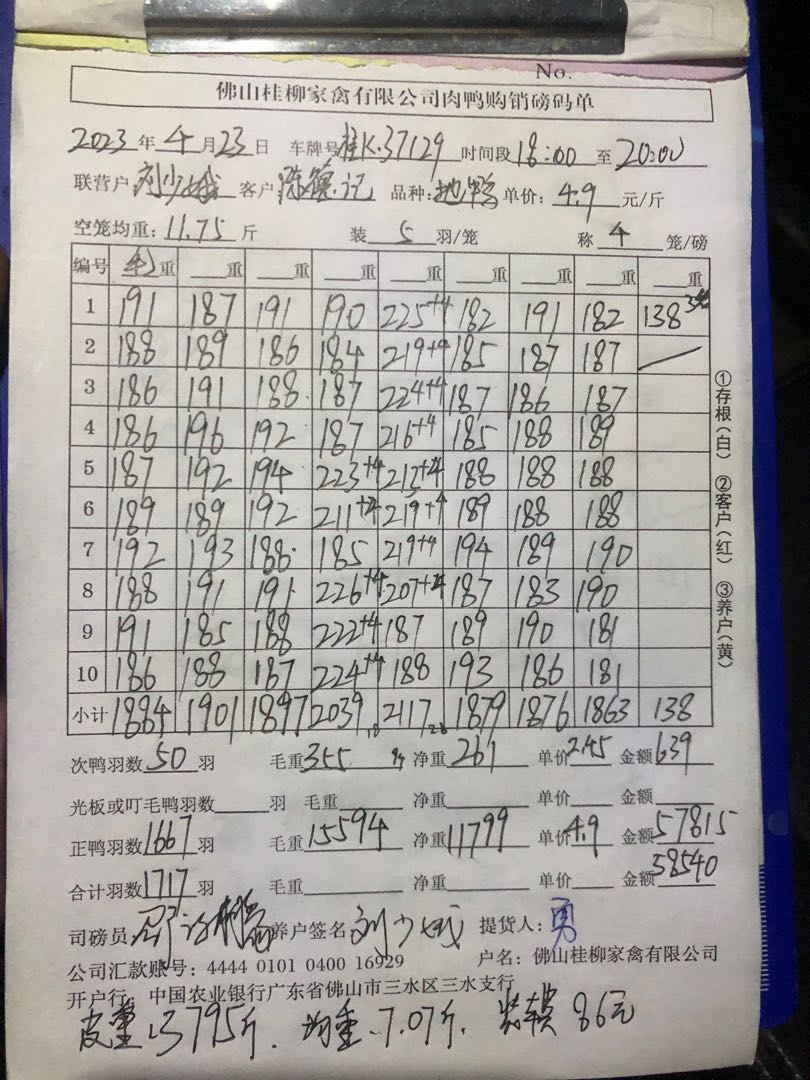 No.
佛山桂柳家禽有限公司肉鸭购销磅码单
2023年4月23日 车牌号桂K.37129 时间段18:00至20:00
联营户刘少娥 客户陈德记 品种:地鸭 单价:4.9元/斤
空笼均重:11.75斤 装5羽/笼 称4笼/磅
编号 毛重 重 重 重 重 重 重 重 重
1 191 187 191 190 225+4 182 191 182 138
2 188 189 186 184 219+4 185 187 187
3 186 191 188 187 224+4 187 186 187
4 186 196 192 187 216+4 185 188 189
5 187 192 194 223+4 188 188 188
6 189 189 192 211+4 219+4 189 188 188
7 192 193 188 185 219+4 194 189 190
8 188 191 191 226+4 207+4 187 183 190
9 191 185 188 222+4 187 189 190 181
10 186 188 187 224+4 188 193 186 181
小计 1884 1901 1897 2039 2117 1879 1876 1863 138
次鸭羽数50羽 毛重355 净重261 单价2.45 金额639
光板或叮毛鸭羽数 羽 毛重 净重 单价 金额
正鸭羽数1667羽 毛重15594 净重11799 单价4.9 金额57815
合计羽数1717羽 毛重 净重 单价 金额58540
司磅员 养户签名刘少娥 提货人:勇
公司汇款账号:4444 0101 0400 16929 户名:佛山桂柳家禽有限公司
开户行:中国农业银行广东省佛山市三水区三水支行
皮重:3795斤. 均重:7.07斤. 装车费86元
①存根(白) ②客户(红) ③养户(黄)